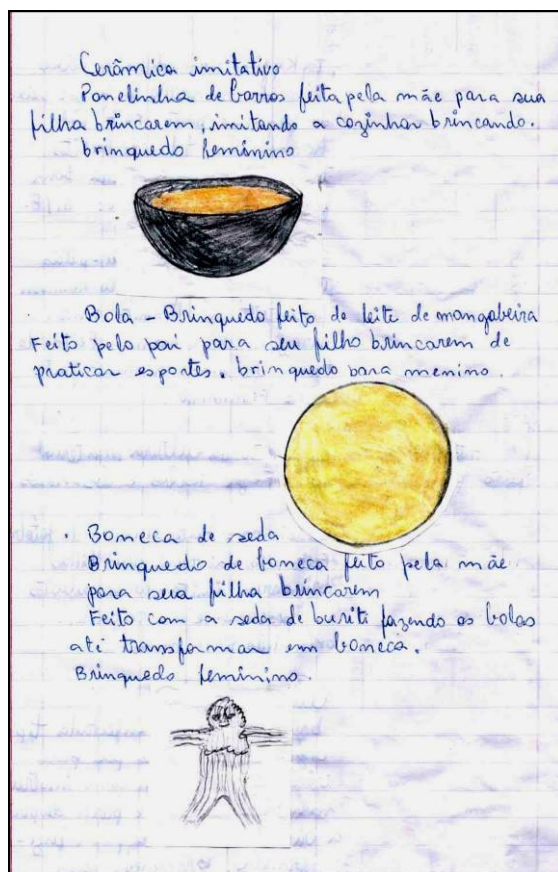 Cerâmica imitativo
Panelinha de barros feita pela mãe para sua
filha brincarem, imitando a cozinhar brincando.
brinquedo feminino
Bola - Brinquedo feito de leite de mangabeira
Feito pelo pai para seu filho brincarem de
praticar esportes. brinquedo para menino.
. Boneca de seda
Brinquedo de boneca feito pela mãe
para sua filha brincarem
Feito com a seda de buriti fazendo as bolas
até transformar em boneca.
Brinquedo feminino.